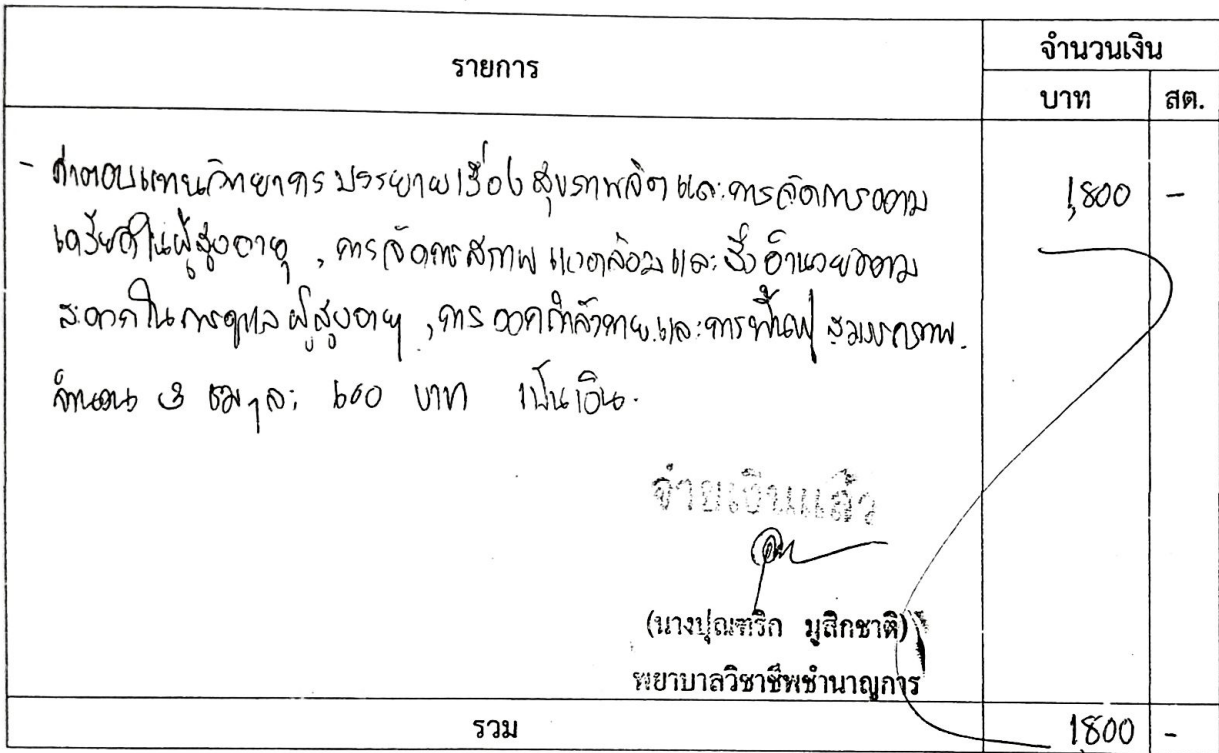 รายการ
จำนวนเงิน
บาท สต.
- ค่าตอบแทนวิทยากร บรรยายเรื่อง สุขภาพจิต และการจัดการความ 1,800 -
เครียดในผู้สูงอายุ , การจัดการสภาพแวดล้อมและสิ่งอำนวยความ
สะดวกในการดูแลผู้สูงอายุ , การออกกำลังกาย และการฟื้นฟูสมรรถภาพ.
จำนวน 3 ชม ๆ ละ 600 บาท เป็นเงิน.
จ่ายเงินแล้ว
(นางปุณฑริก มูสิกชาติ)
พยาบาลวิชาชีพชำนาญการ
รวม 1,800 -